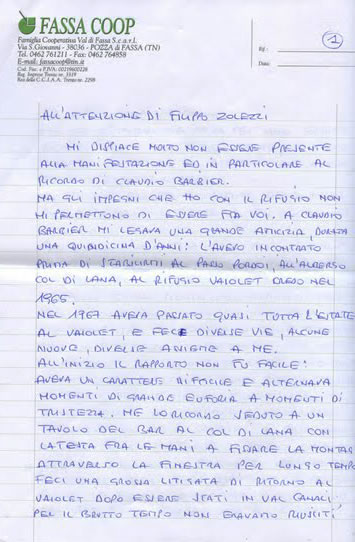 FASSA COOP
Famiglia Cooperativa Val di Fassa S.c.a r.l.
Via S. Giovanni - 38036 - POZZA di FASSA (TN)
Tel. 0462 761211 - Fax: 0462 764858
E-mail: fassacoop@tin.it
Cod. Fisc. e P.IVA: 00119600228
1
ALL'ATTENZIONE DI FILIPPO ZOLEZZI
MI DISPIACE MOLTO NON ESSERE PRESENTE
ALLA MANIFESTAZIONE ED IN PARTICOLARE AL
RICORDO DI CLAUDIO BARBIER.
MA GLI IMPEGNI CHE HO CON IL RIFUGIO NON
MI PERMETTONO DI ESSERE FRA VOI. A CLAUDIO
BARBIER MI LEGAVA UNA GRANDE AMICIZIA, DURATA
UNA QUINDICINA D'ANNI: L'AVEVO INCONTRATO
PRIMA DI STABILIRTI AL PASSO PORDOI, ALL'ALBERGO
COL DI LANA, AL RIFUGIO VAIOLET CREDO NEL
1965.
NEL 1967 AVEVA PASSATO QUASI TUTTA L'ESTATE
AL VAIOLET, E FECE DIVERSE VIE, ALCUNE
NUOVE, DIVERSE ASSIEME A ME.
ALL'INIZIO IL RAPPORTO NON FU FACILE:
AVEVA UN CARATTERE DIFFICILE E ALTERNAVA
MOMENTI DI GRANDE EUFORIA A MOMENTI DI
TRISTEZZA. ME LO RICORDO SEDUTO A UN
TAVOLO DEL BAR AL COL DI LANA CON
LA TESTA FRA LE MANI A FISSARE LA MONTAG
ATTRAVERSO LA FINESTRA PER LUNGO TEMPO
FECI UNA GROSSA LITIGATA DI RITORNO AL
VAIOLET DOPO ESSERE STATI IN VAL CANALI
PER IL BRUTTO TEMPO NON ERAVAMO RIUSCITI